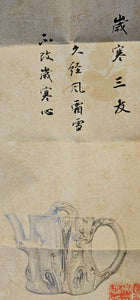 歲寒三友
久經風霜雪
不改歲寒心